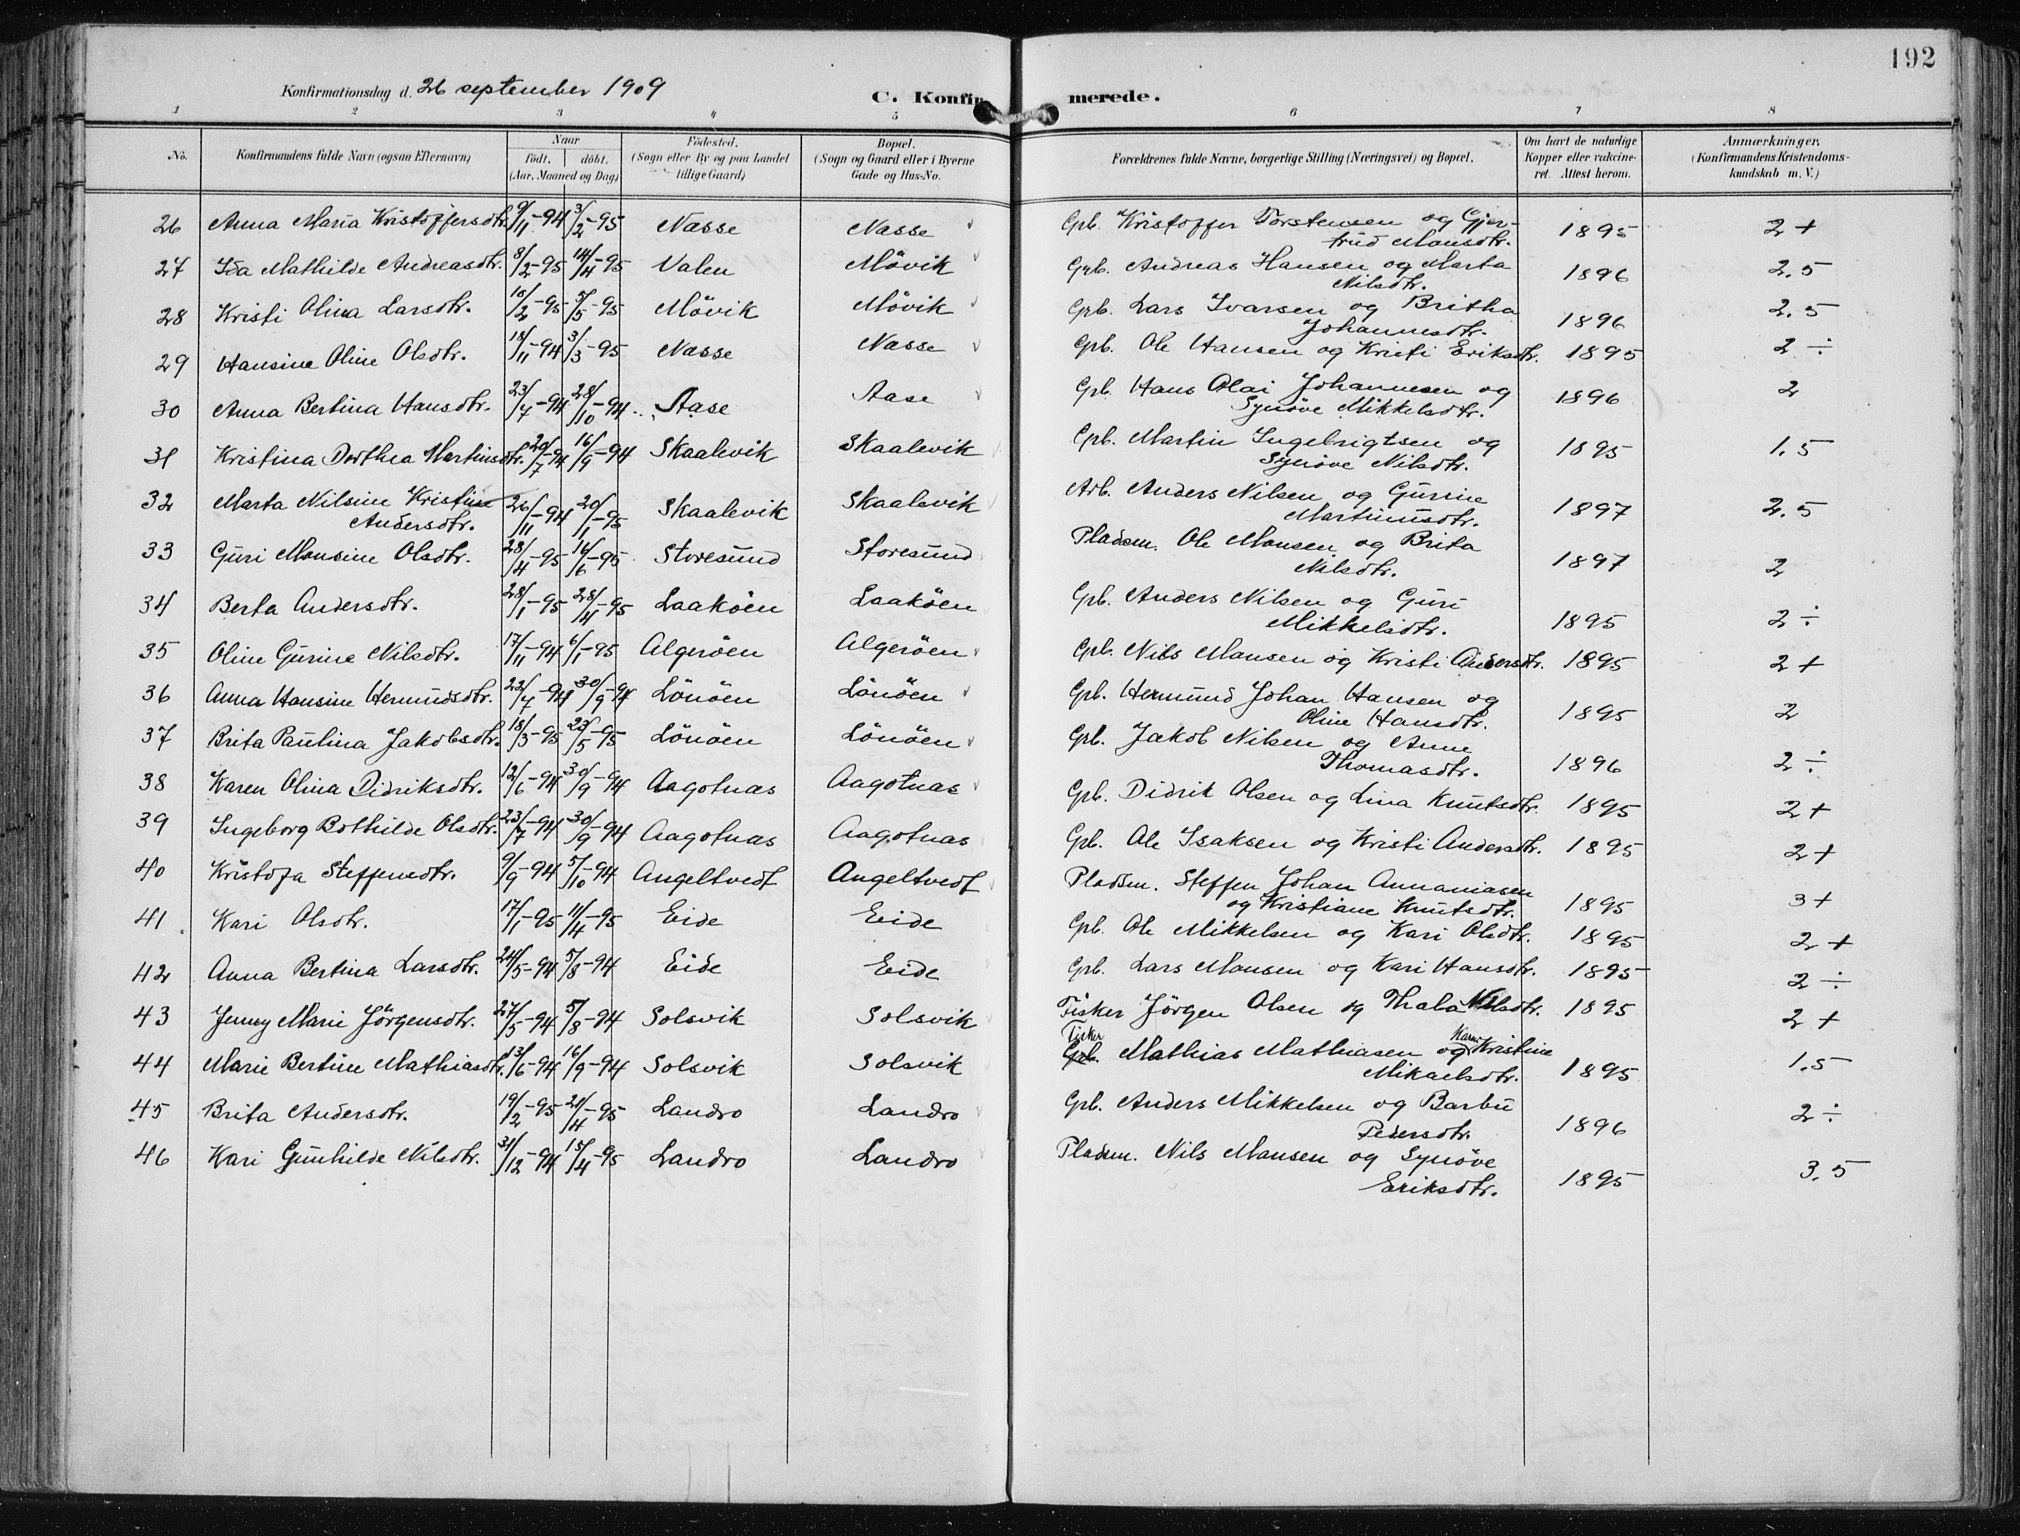 192
Konfirmationsdag d. 26 september 1909
C. Konfirmerede.
1 2 3 4 5 6 7 8
No. Konfirmandens fulde Navn (ogsaa Efternavn) Naar födt. döbt. (Aar, Maaned og Dag) Födested. (Sogn eller By og paa Landet tillige Gaard) Bopæl. (Sogn og Gaard eller i Byerne Gade og Hus-No. Forældrenes fulde Navne, borgerlige Stilling (Næringsvei) og Bopæl. Om havt de naturlige Kopper eller vakcineret. Attest herom. Anmærkninger. (Konfirmandens Kristendomskundskab m. V.)
26 Anna Maria Kristoffersdtr. 9/11-94 3/2-95 Nasse Nasse Grb. Kristoffer Torstensen og Gjertrud Monsdtr. 1895 2+
27 Ida Mathilde Andreasdtr. 8/2-95 14/4-95 Valen Mövik Grb. Andreas Hansen og Marta Nilsdtr. 1896 2.5
28 Kristi Olina Larsdtr. 10/2-95 5/5-95 Mövik Mövik Grb. Lars Ivarsen og Britha Johannesdtr. 1896 2.5
29 Hansine Oline Olsdtr. 18/11-94 3/3-95 Nasse Nasse Grb. Ole Hansen og Kristi Eriksdtr. 1895 2 ÷
30 Anna Bertina Hansdtr. 23/7-94 28/10-94 Aase Aase Grb. Hans Olai Johannesen og Synöve Mikkelsdtr. 1896 2
31 Kristina Dorthea Martinsdtr. 20/7-94 16/9-94 Skaalevik Skaalevik Grb. Martin Ingebrigtsen og Synöve Nilsdtr. 1895 1.5
32 Marta Nilsine Kristine Andersdtr. 26/11-94 20/1-95 Skaalevik Skaalevik Arb. Anders Nilsen og Gurine Martinusdtr. 1897 2.5
33 Guri Monsine Olsdtr. 28/4-95 16/6-95 Storesund Storesund Pladsm. Ole Monsen og Brita Nilsdtr. 1897 2
34 Berta Andersdtr. 28/1-95 28/4-95 Laaköen Laaköen Grb. Anders Nilsen og Guri Mikkelsdtr. 1895 2 ÷
35 Oline Gurine Nilsdtr. 17/11-94 6/1-95 Algeröen Algeröen Grb. Nils Monsen og Kristi Andersdtr. 1895 2+
36 Anna Hansine Hermundsdtr. 23/7-94 30/9-94 Lönöen Lönöen Grb. Hermund Johan Hansen og Oline Hansdtr. 1895 2
37 Brita Paulina Jakobsdtr. 18/3-95 23/5-95 Lönöen Lönöen Grb. Jakob Nilsen og Anne Thomasdtr. 1896 2 ÷
38 Karen Olina Didriksdtr. 12/6-94 30/9-94 Aagotnas Aagotnas Grb. Didrik Olsen og Lina Knutsdtr. 1895 2+
39 Ingeborg Bothilde Olsdtr. 23/7-94 30/9-94 Aagotnas Aagotnas Grb. Ole Isaksen og Kristi Andersdtr. 1895 2+
40 Kristofa Steffensdtr. 9/9-94 5/10-94 Angeltvedt Angeltvedt Pladsm. Steffen Johan Annaniasen og Kristiane Knutsdtr. 1895 3+
41 Kari Olsdtr. 17/1-95 11/4-95 Eide Eide Grb. Ole Mikkelsen og Kari Olsdtr. 1895 2+
42 Anna Bertina Larsdtr. 24/5-94 5/8-94 Eide Eide Grb. Lars Monsen og Kari Hansdtr. 1895 2 ÷
43 Jenny Marie Jörgensdtr. 27/5-94 5/8-94 Solsvik Solsvik Fisker Jörgen Olsen og Thala Nilsdtr. 1895 2+
44 Marie Bertine Mathiasdtr. 13/6-94 16/9-94 Solsvik Solsvik Fisker Grb. Mathias Mathiasen og Karen Kristine Mikaelsdtr. 1895 1.5
45 Brita Andersdtr. 19/2-95 21/4-95 Landro Landro Grb. Anders Mikkelsen og Barbu Pedersdtr. 1896 2 ÷
46 Kari Gunhilde Nilsdtr. 31/12-94 15/4-95 Landro Landro Pladsm. Nils Monsen og Synöve Eriksdtr. 1895 3.5